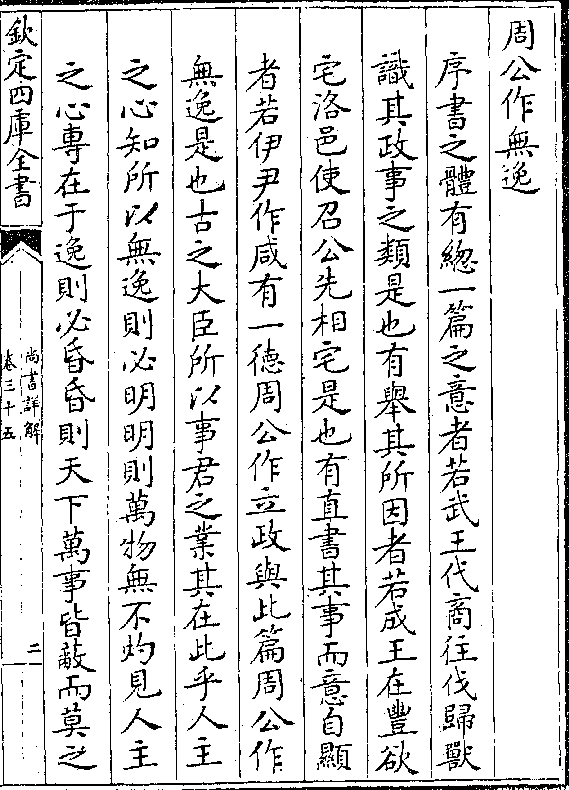 周公作無逸
序書之體有緫一篇之意者若武王代商徃伐歸獸
識其政事之類是也有舉其所因者若成王在豐欲
宅洛邑使召公先相宅是也有直書其事而意自顯
者若伊尹作咸有一德周公作立政與此篇周公作
無逸是也古之大臣所以事君之業其在此乎人主
之心知所以無逸則必明明則萬物無不灼見人主
之心專在于逸則必昏昏則天下萬事皆蔽而莫之
欽定四庫全書
尚書詳解
卷三十五
二